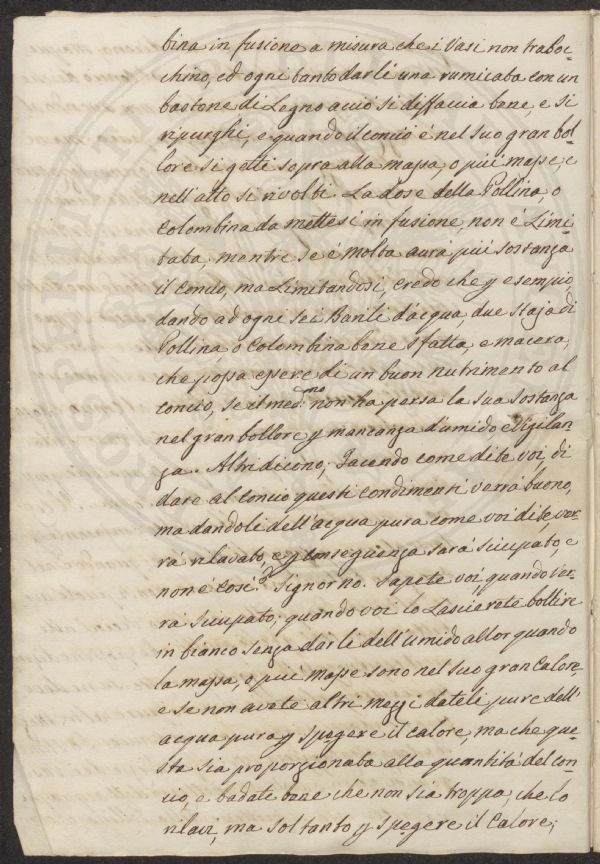 bina in fusione a misura che i vasi non traboc-
chino, ed ogni tanto darli una rumicata con un
bastone di Legno acciò si disfaccia bene, e si
ripurghi, e quando il concio è nel suo gran bol-
lore si getti sopra alla massa, o più masse, e
nell'atto si rivolti. La dose della Pollina, o
Colombina da mettesi in fusione, non è Limi-
tata, mentre se è molta aurà più sostanza
il Concio, ma Limitandosi, credo che p esempio,
dando ad ogni sei Barili d'acqua, due staja di
Pollina o Colombina bene sfatta, e macera,
che possa essere di un buon nutrimento al
concio, se il med:mo non ha persa la sua sostanza
nel gran bollore p mancanza d'umido e Vigilan-
za. Altri dicono, Facendo come dite voi, di
dare al Concio questi condimenti verrà buono,
ma dandoli dell'acqua pura come voi dite, ver-
rà rilavato, e p conseguenza sarà sciupato, e
non è così? Signor no. Sapete voi, quando ver-
rà sciupato; quando voi lo Lascierete bollire
in bianco senza darli dell'umido allor quando
la massa, o più masse sono nel suo gran Calore,
e se non avete altri mezzi dateli pure dell'
acqua pura p spegere il calore, ma che que-
sta sia proporzionata alla quantità del con-
cio, e badate bene che non sia troppa, che lo
rilavi, ma soltanto p spegere il Calore;